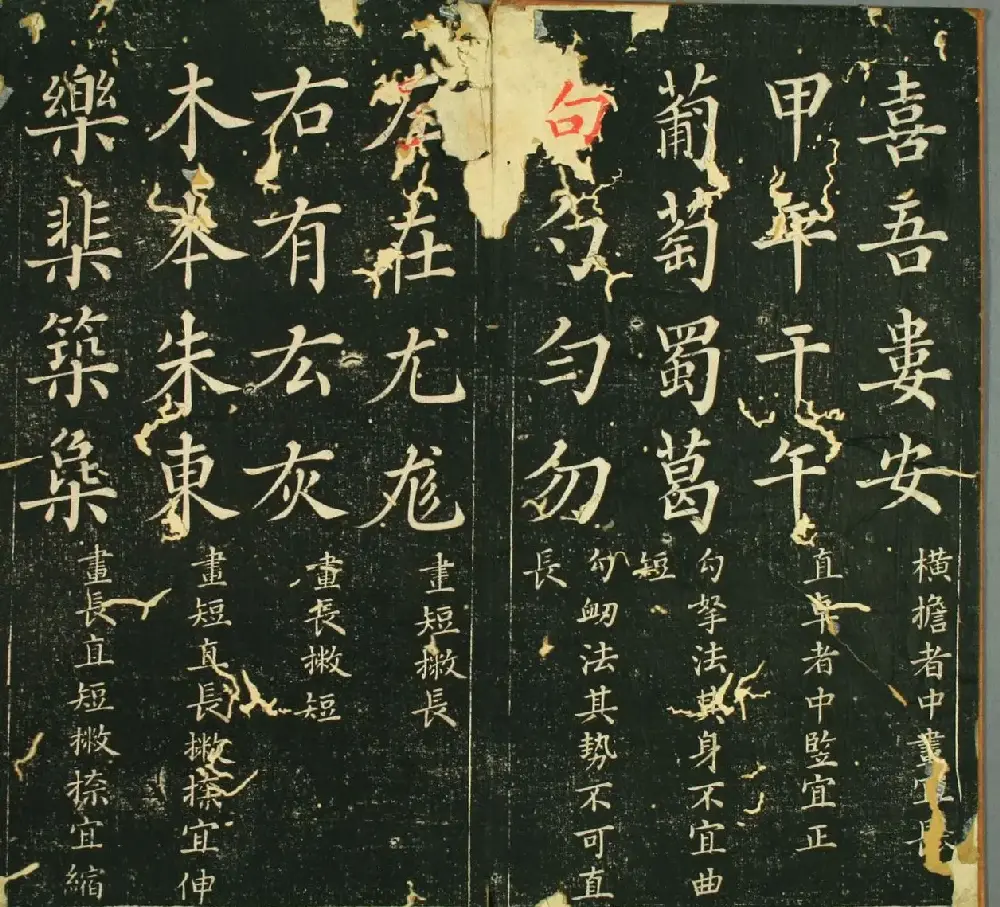 喜吾婁安
橫擔者中畫宜長
甲年干午
直卓者中竪宜正
葡萄蜀葛
勾拏法其身不宜曲
短
句勺勻勿
勾衂法其勢不可直
長
左在尤尨
畫短撇長
右有厷灰
畫長撇短
木本朱東
畫短直長撇捺宜伸
樂棐築
畫長直短撇捺宜縮